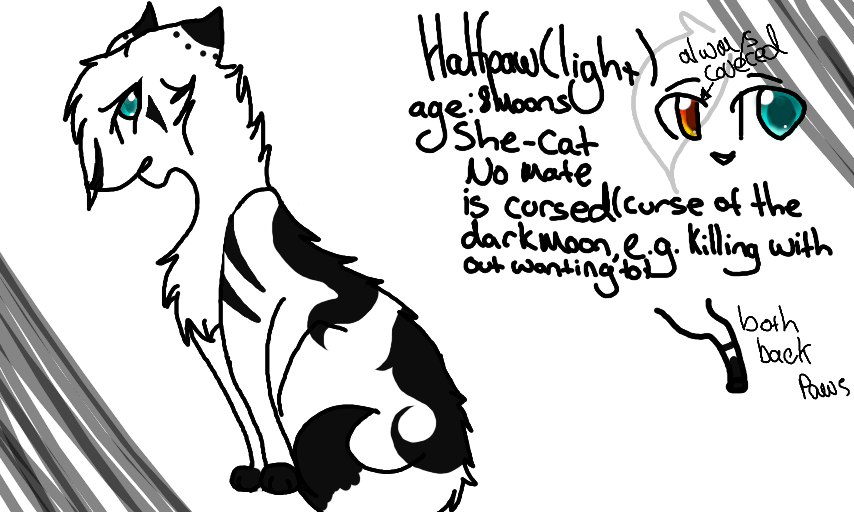 Halfpaw(light)
always
covered
age: 8moons
She-cat
No mate
is cursed(curse of the
darkmoon, e.g. killing with
out wanting to)
both
back
Paws